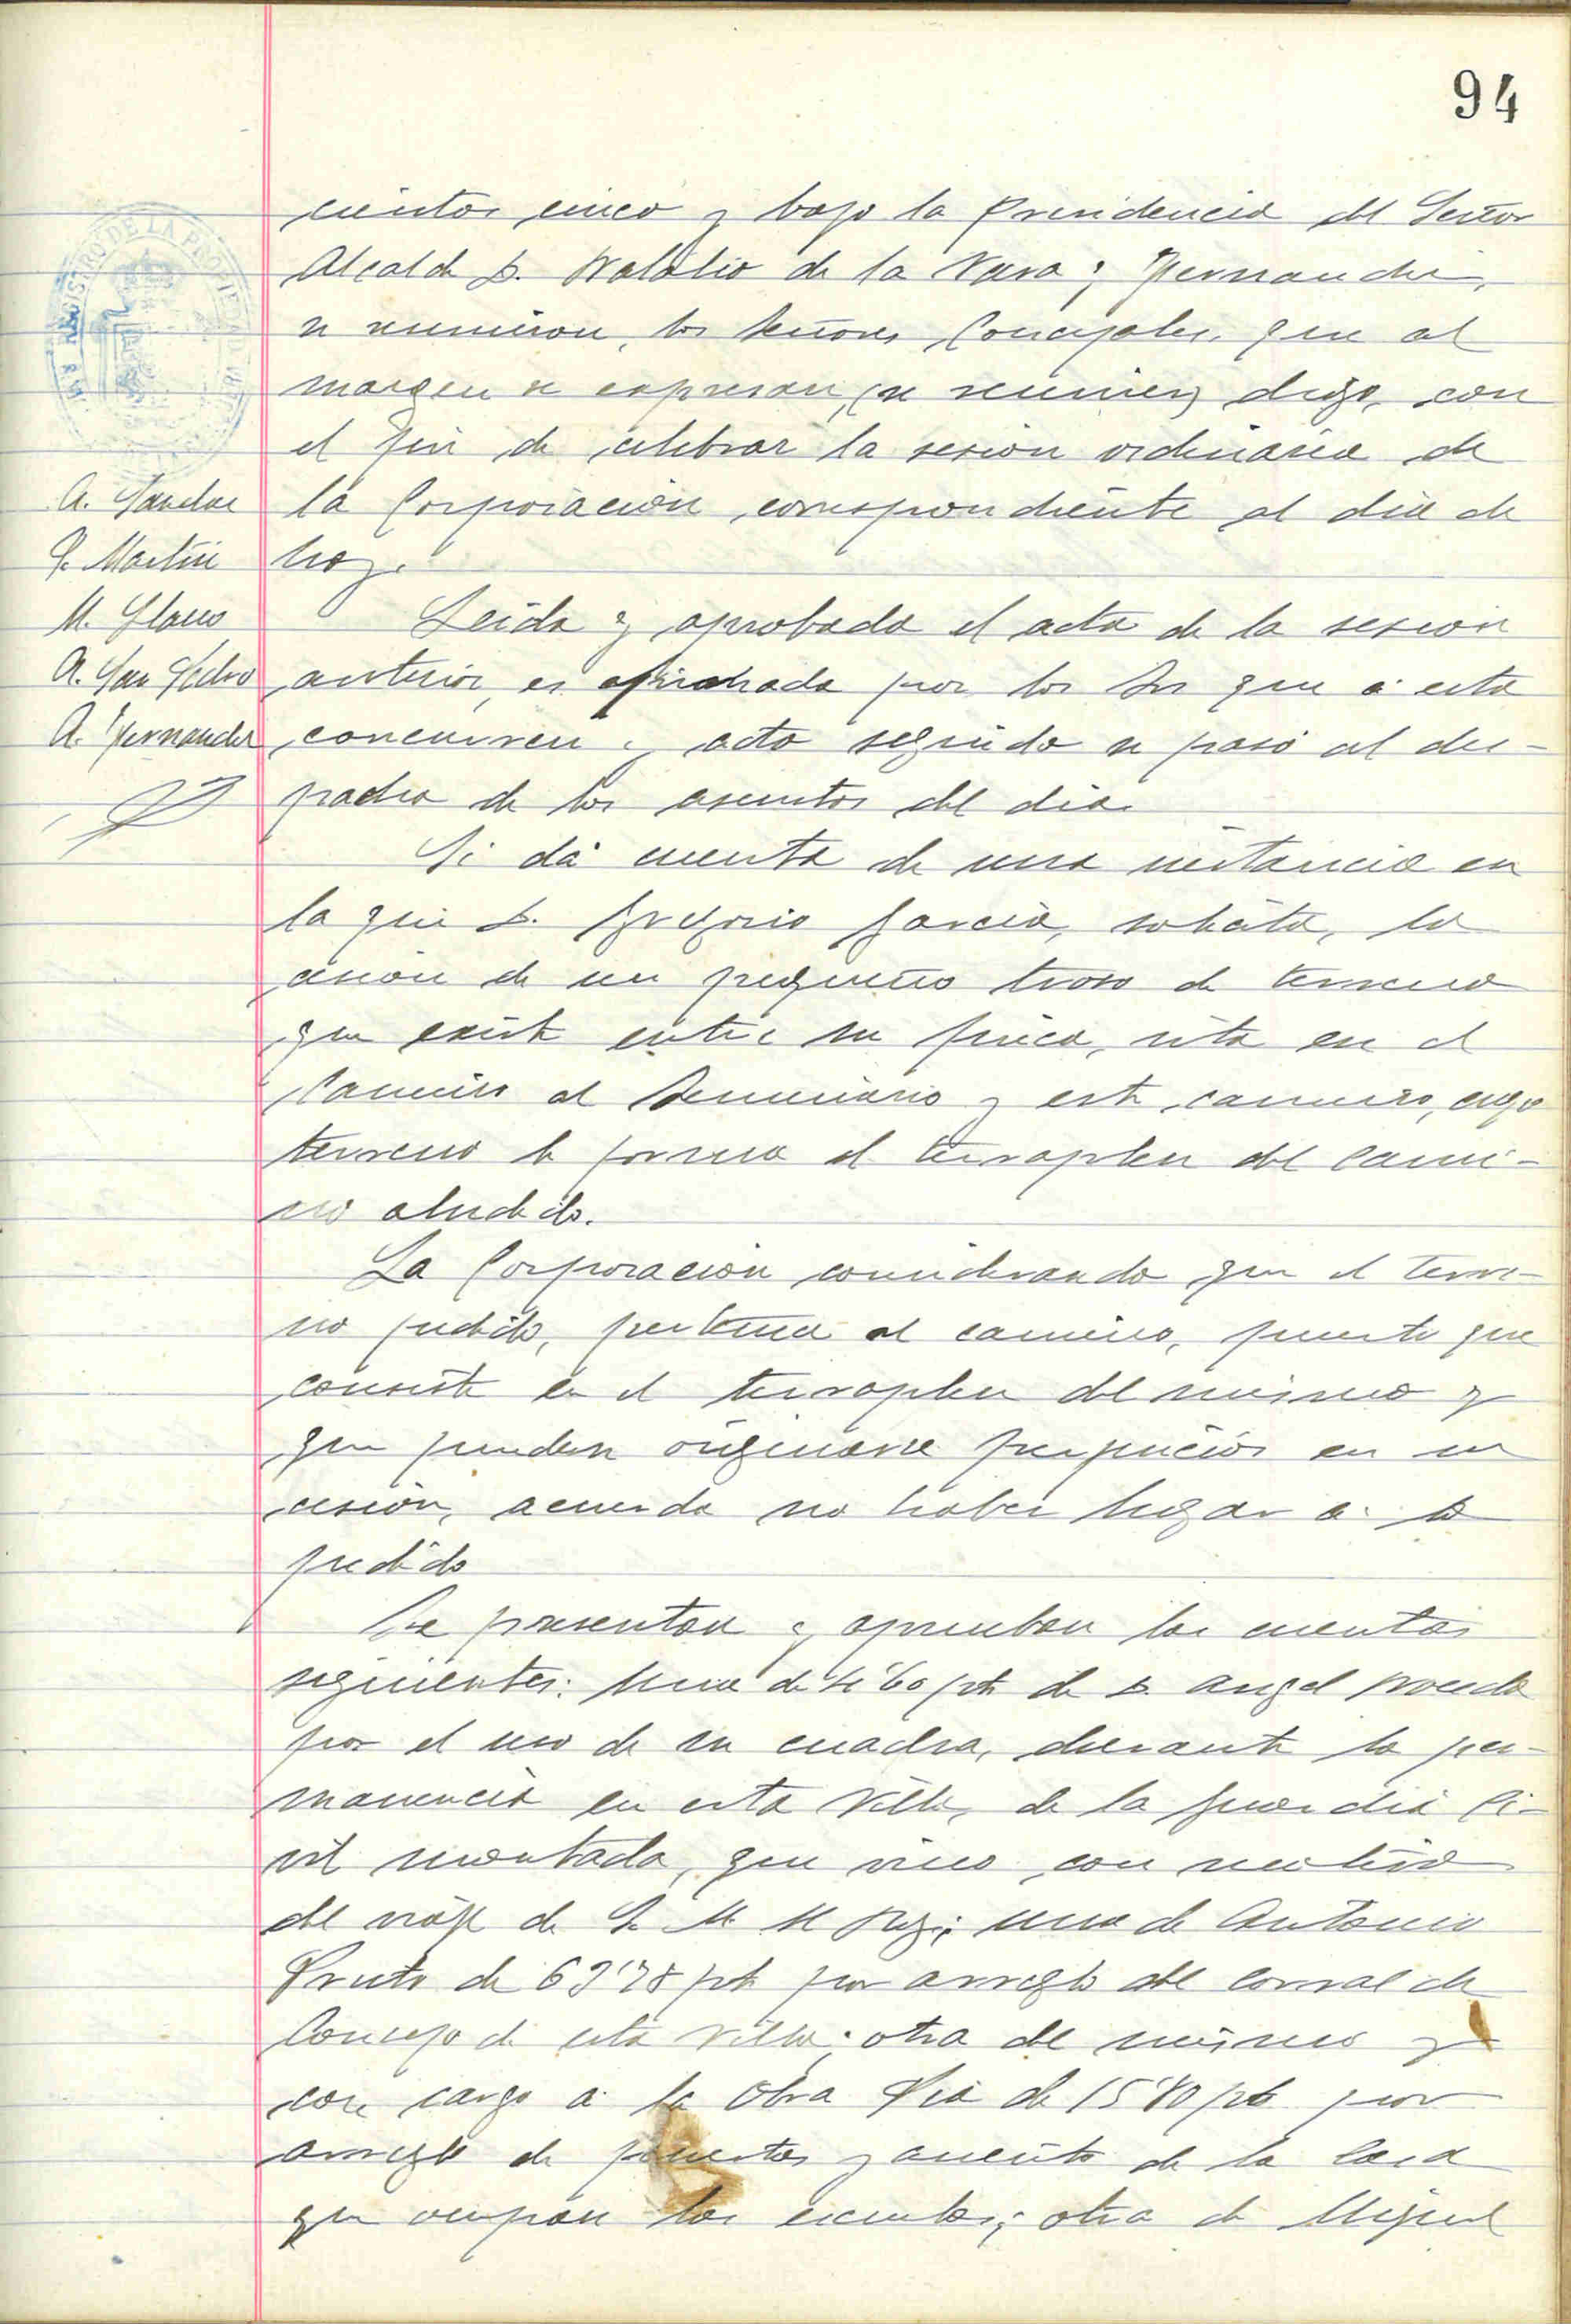 94
cientos cinco y bajo la Presidencia del Señor
Alcalde D. Natalio de la Nava y Hernandez,
se reunieron, los Señores Concejales, que al
margen se expresan, (se reunen) digo, con
el fin de celebrar la sesion ordinaria de
A. Sanchez
la Corporación, correspondiente al dia de
P. Martin
hoy.
M. Llano
Leida y aprobada el acta de la sesion
A. San Pedro
anterior, es aprobada por los Sres que á esta
A. Hernandez
concurren y acto seguido se pasó al des-
pacho de los asuntos del dia.
Se dá cuenta de una instancia en
la que D. Gregorio Garcia, solicita, la
cesion de un pequeño troso de terreno
que existe entre su finca, sita en el
Camino al Seminario y este camino, cuyo
terreno lo forma el terraplen del cami-
no aludido.
La Corporación considerando que el terre-
no pedido, pertenece al camino, puesto que
consiste en el terraplen del mismo y
que pueden originarse perjuicios en su
cesión, acuerda no haber lugar á lo
pedido
Se presentan y aprueban las cuentas
siguientes: Una de 60 pts de D. Angel
por el uso de su cuadra, durante la per-
manencia en esta Villa, de la Guardia Ci-
vil montada, que vino con motivo
del viaje de S. M. el Rey; una de Antonio
Prieto de 69'78 pts por arreglo del corral de
Concejo de esta Villa; otra del mismo y
con cargo á la Obra Pia de 15'80 pts por
arreglo de puertas y asiento de la Casa
que ocupan las escuelas; otra de Miguel